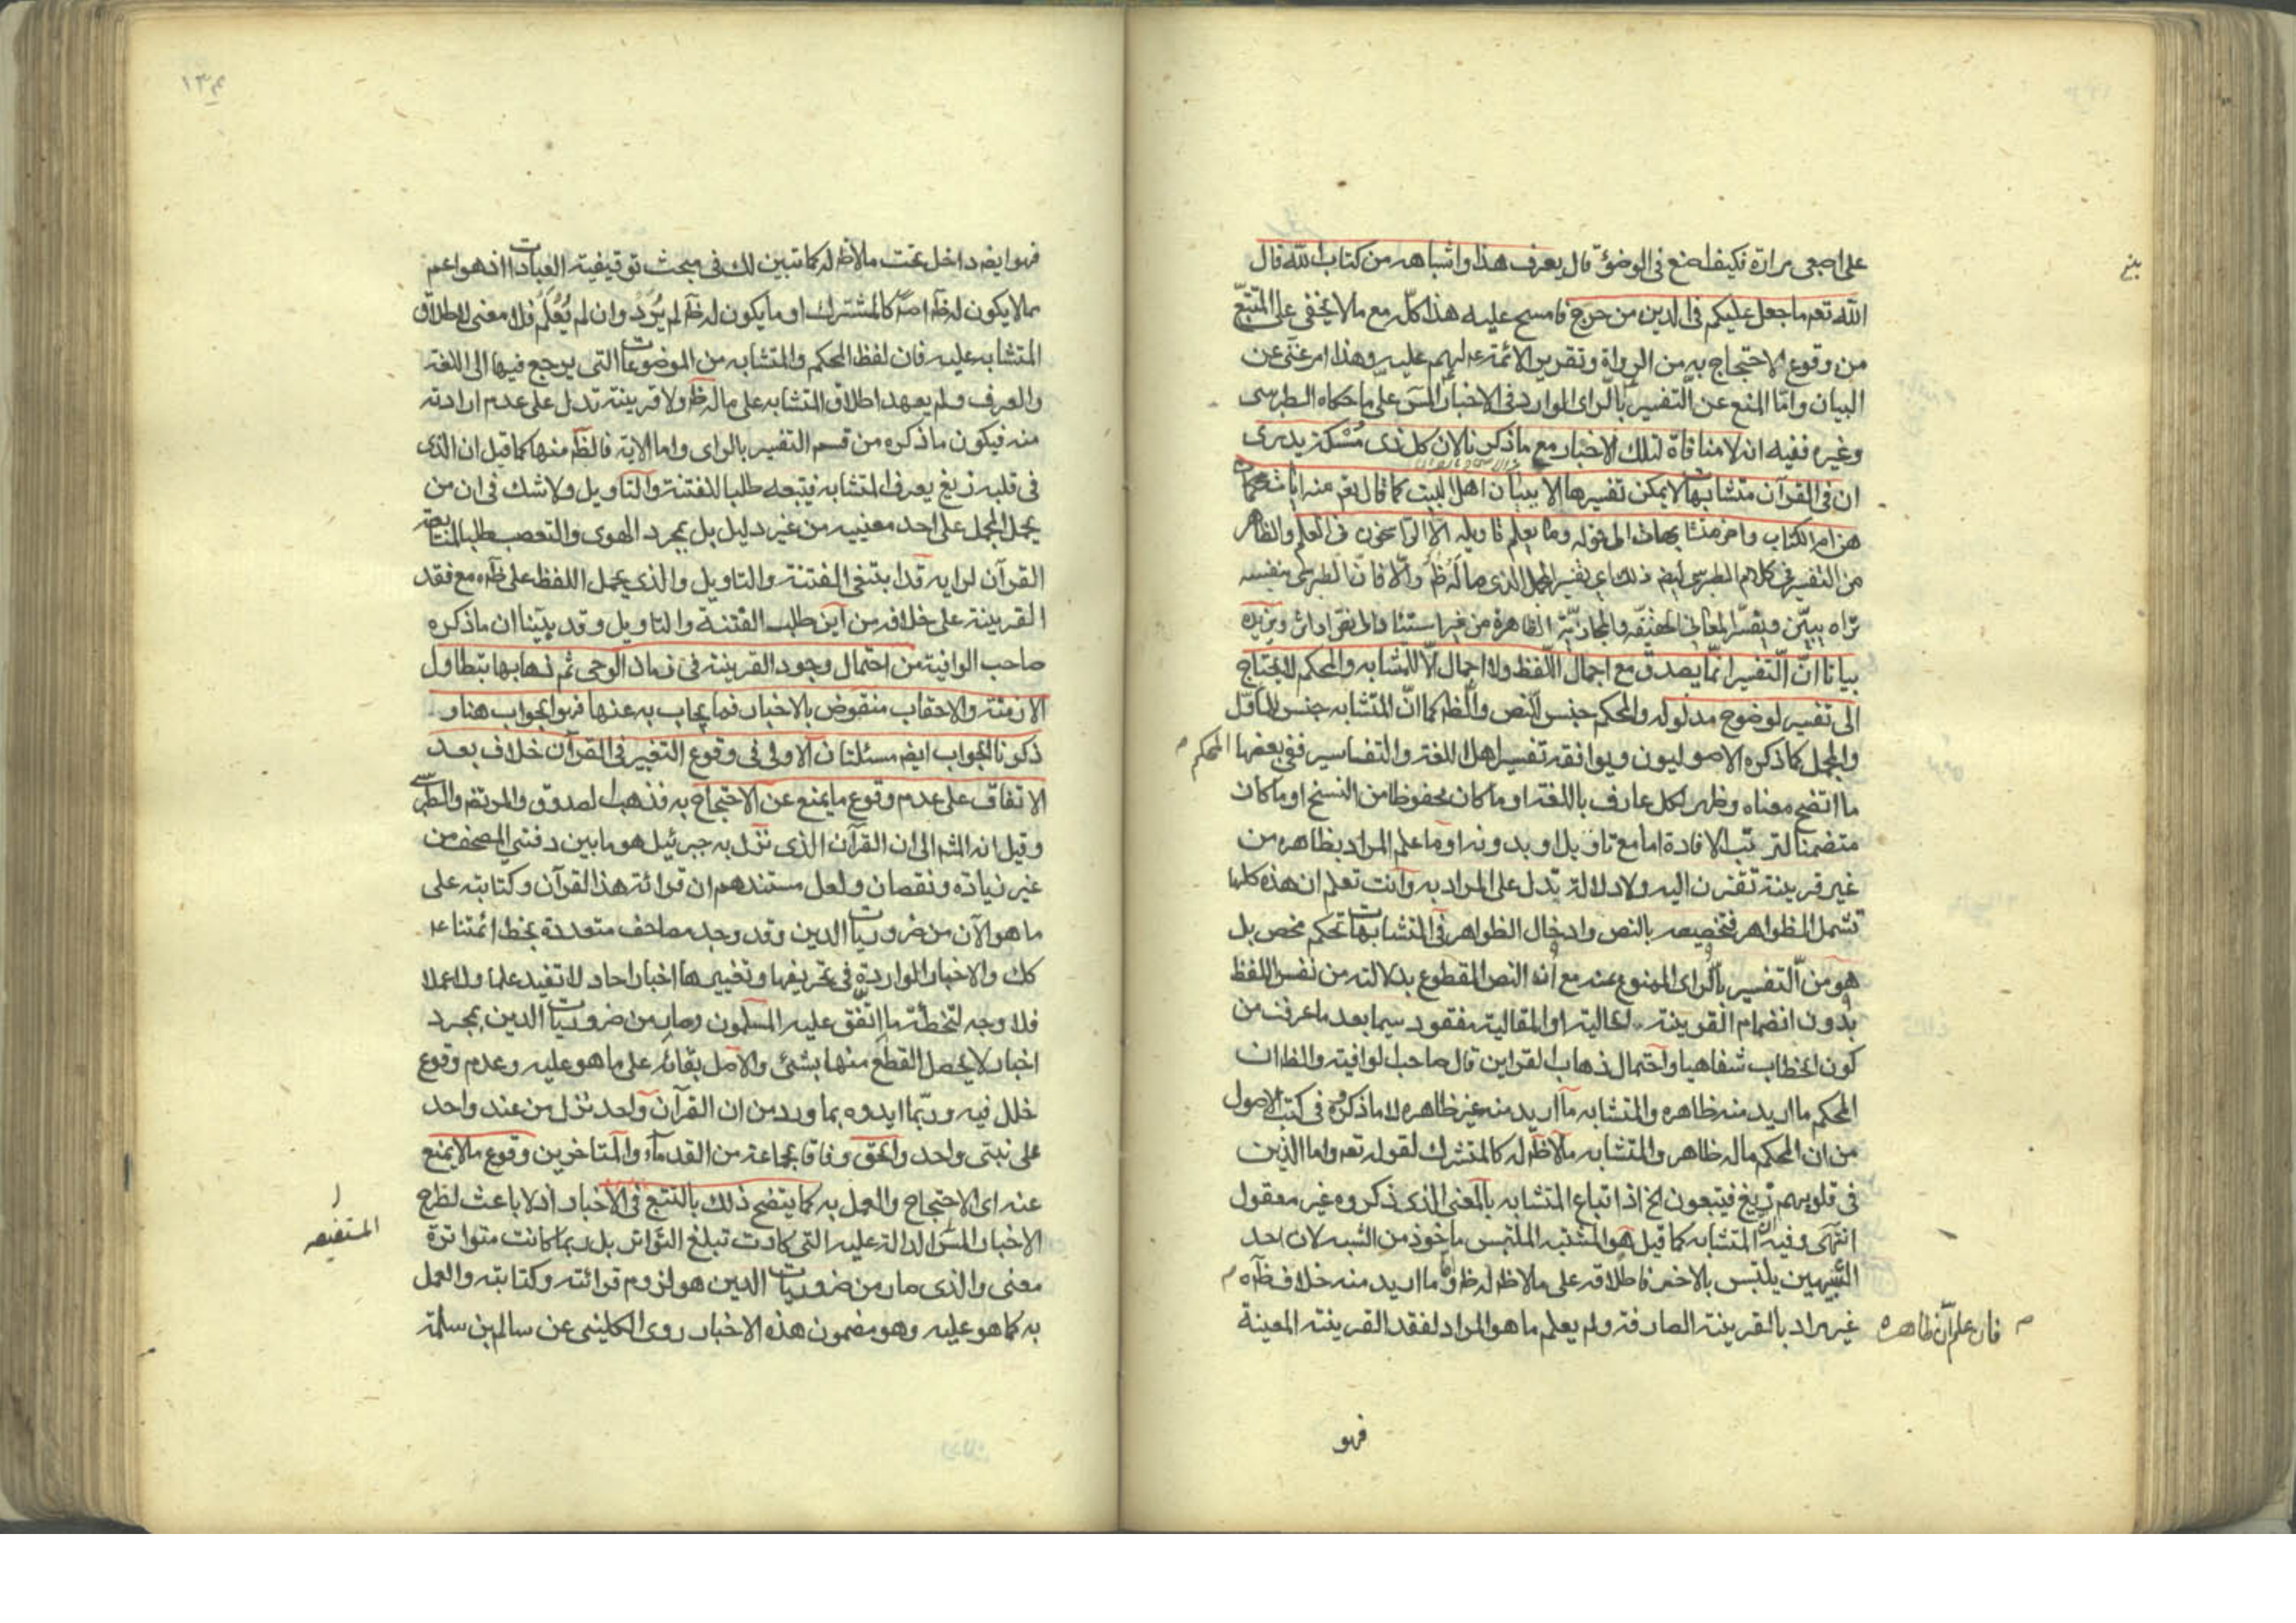 على اصبعى مرارة فكيف اصنع فى الوضوء قال يعرف هذا واشباهه من كتاب الله قال
الله تعم ما جعل عليكم فى الدين من حرج فامسح عليه هذا كلّه مع ما لا يخفى على المتتبّع
من وقوع الاحتجاج به من الرواة وتقرير الائمة عم لهم عليه وهذا امر غنّى عن
البيان وامّا المنع عن التفسير بالراى الوارد فى الاخبار على ما حكاه الطبرسى
وغيره ففيه انه لا منافاة لتلك الاخبار مع ما ذكرنا لان كل ذى مُسْكة يدرى
ان فى القرآن متشابهات لا يمكن تفسيرها الا ببيان اهل البيت كما قال تعم منه ايات محكمات
هن ام الكتاب واخر متشابهات الى قوله وما يعلم تاويله الا الراسخون فى العلم والظاهر
من التفسير فى كلام الطبرسى ايضم ذلك اى تفسير المجمل الذى ما لَه ظم والّا فانّ الطبرسى بنفسه
تراه يبيّن ويفسّر المعانى الحقيقه والمجازيّة الظاهرة من غير استناد الى نقر او اثر ويزيده
بيانا انّ التفسير انّما يصدق مع اجمال اللّفظ ولا اجمال الّا للمتشابه والمحكم لا يحتاج
الى تفسير لوضوح مدلوله والمحكم جنس للنص والظم كما انّ المتشابه جنس للماوّل
والمجمل كما ذكره الاصوليون ويوافقه تفسير اهل اللغة والتفاسير ففى بعضها المحكم
ما اتضح معناه وظهر لكل عارف باللغة او ما كان محفوظا من النسخ او ما كان
متضمنا لترتب الافادة اما مع تاويل او بدونه او ما علم المراد بظاهره من
غير قرينة تقترن اليه ولا دلالة تدل على المراد به وانت تعلم ان هذه كلها
تشمل الظواهر فتخصيصه بالنص وادخال الظواهر فى المتشابهات تحكم محض بل
هو من التفسير بالراى الممنوع عنه مع انه النص المقطوع بدلالته من نفس اللفظ
بدون انضمام القرينة الحالية او المقالية مفقود سيما بعد ما عرفت من
كون الخطاب شفاهيا واحتمال ذهاب القراين قال صاحب الوافية والظ ان
المحكم ما اريد منه ظاهره والمتشابه ما اريد منه غير ظاهره لا ما ذكروه فى كتب الاصول
من ان المحكم ما له ظاهر والمتشابه ما لا ظم له كالمشترك لقوله تعم واما الذين
فى قلوبهم زيغ فيتبعون الخ اذ اتباع المتشابه بالمعنى الذى ذكروه غير معقول
انتهى وفيه انّ المتشابه كما قيل هو المشتبه الملتبس ماخوذ من الشبه لان احد
الشبهين يلتبس بالاخر فاطلاقه على ما لا ظم له ظ واما ما اريد منه خلاف ظم ه
فان علم انّ ظاهره غير مراد بالقرينة الصارفة ولم يعلم ما هو المراد لفقد القرينة المعينة
فهو
فهو ايضم داخل تحت ما لا ظم له كما تبين لك فى مبحث توقيفية العبادات اذ هو اعم
مما لا يكون له ظم اصلا كالمشترك او ما يكون له ظم لم يُرَد وان لم يُعْلَم فلا معنى لاطلاق
المتشابه عليه فان لفظ المحكم والمتشابه من الموضوعات التى يرجع فيها الى اللغة
والعرف ولم يعهد اطلاق المتشابه على ما له ظم ولا قرينة تدل على عدم ارادته
منه فيكون ما ذكره من قسم التفسير بالراى واما الاية فالظم منها كما قيل ان الذى
فى قلبه زيغ يعرف المتشابه فيتبعه طلبا للفتنة والتاويل ولا شك فى ان من
يحمل المجمل على احد معنييه من غير دليل بل بمجرد الهوى والتعصب طلبا لمتابعة
القرآن لرايه قد ابتغى الفتنة والتاويل والذى يحمل اللفظ على ظم ه مع فقد
القرينة على خلافه من اين طلب الفتنة والتاويل وقد بيّنا ان ما ذكره
صاحب الوافية من احتمال وجود القرينة فى زمان الوحى ثم ذهابها بتطاول
الازمنة والاحقاب منقوض بالاخبار فما يجاب به عنها فهو الجواب هنا و
ذكرنا الجواب ايضم مسئلتان الاولى فى وقوع التغيير فى القرآن خلاف بعد
الاتفاق على عدم وقوع ما يمنع عن الاحتجاج به فذهب الصدوق والمرتضى والطبرسى
وقيل انه المشم الى ان القرآن الذى نزل به جبرئيل هو ما بين دفتى المصحف من
غير زيادة ونقصان ولعل مستندهم ان قرائة هذا القرآن وكتابته على
ما هو الآن من ضروريات الدين وقد وجد مصاحف متعددة بخط ائمتنا عم
كك والاخبار الواردة فى تحريفها وتغييرها اخبار احاد لا تفيد علما ولا عملا
فلا وجه لتخطئة ما اتّفق عليه المسلمون وصار من ضروريات الدين بمجرد
اخبار لا يحصل القطع منها بشئ والاصل بقائه على ما هو عليه وعدم وقوع
خلل فيه وربّما ايدوه بما ورد من ان القرآن واحد نزل من عند واحد
على نبىّ واحد والحق وفاقا لجماعة من القدماء والمتاخرين وقوع ما لا يمنع
عنه اى الاحتجاج والعمل به كما يتضح ذلك بالتتبع فى الاخبار اذ لا باعث لطرح
الاخبار المستفيضه الدالة عليه التى كادت تبلغ التواتر بل ربما كانت متواترة
معنى والذى صار من ضروريات الدين هو لزوم قرائته وكتابته والعمل
به كما هو عليه وهو مضمون هذه الاخبار روى الكلينى عن سالم بن سلمة